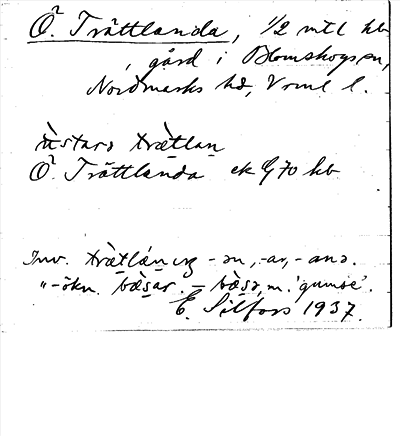 Ö. Trättlanda, 1/2 mtl kb
, gård i Blomskogs sn,
Nordmarks hd, Vrml l.
ùstarə træ̀tlan
Ö. Trättlanda ek G 70 kb
Inv. træ̀tlánıŋ -ən, -ar, -anə.
"-ökn. bæ̀sar. – bæ̀sə, m. 'gumse'.
E. Silfors 1937.